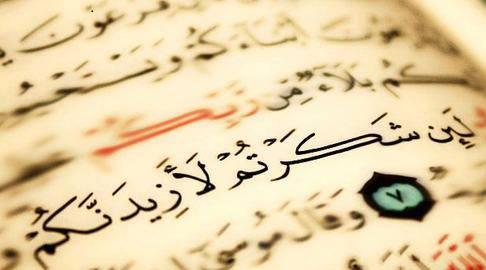 فرعون
أبناءكم ويستحيون
كم بلاء من ربك
لَئِن شَكَرْتُمْ لَأَزِيدَنَّكُمْ
٧ وقال موسى